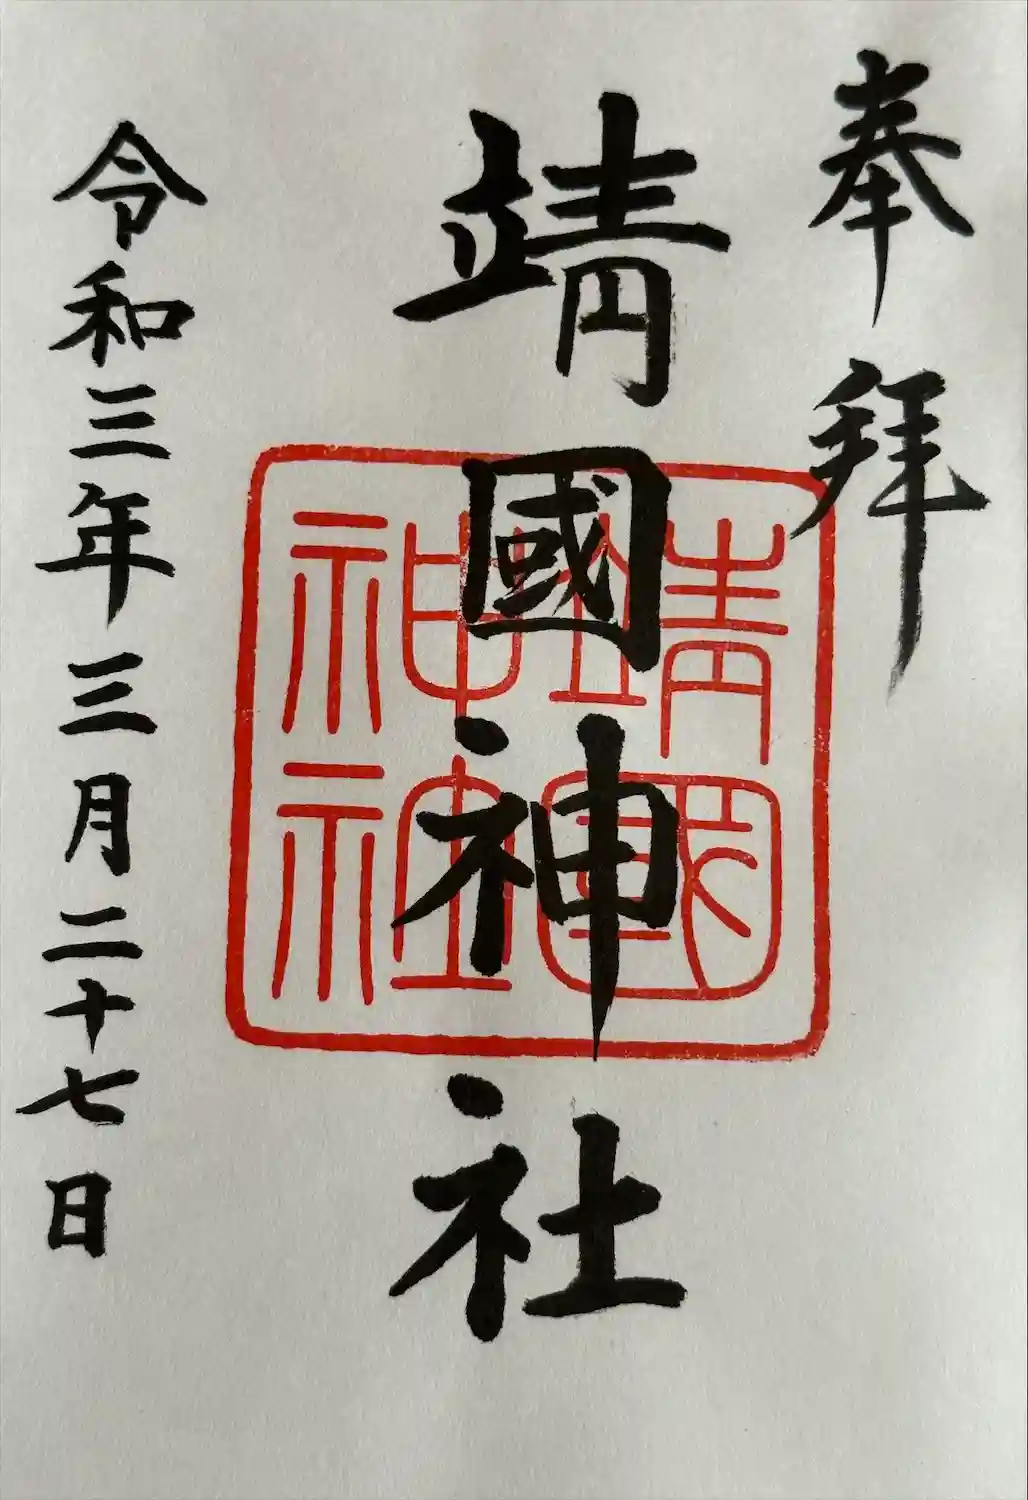 奉拜
靖國神社
靖國神社
令和三年三月二十七日